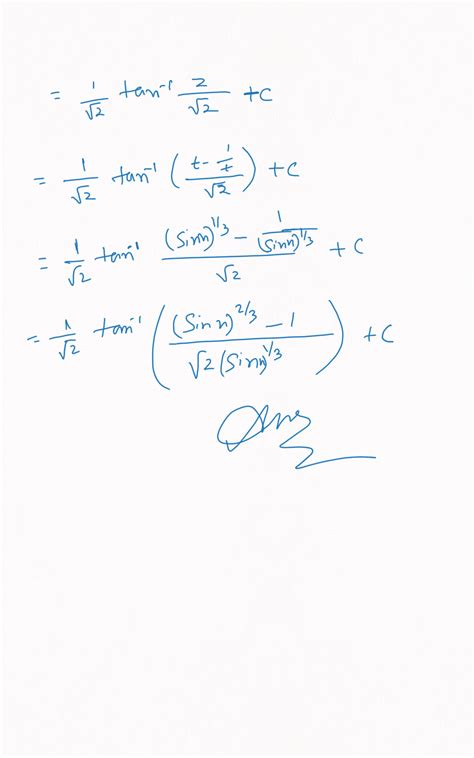 = 1/√2 tan⁻¹ 2/√2 + C
= 1/√2 tan⁻¹ ( (t - 1/t)/√2 ) + C
= 1/√2 tan⁻¹ ((Sinx)^1/3 - 1/(Sinx)^1/3)/√2 + C
= 1/√2 tan⁻¹ ( ((Sinx)^2/3 - 1)/(√2 (Sinx)^1/3) ) + C
Ans